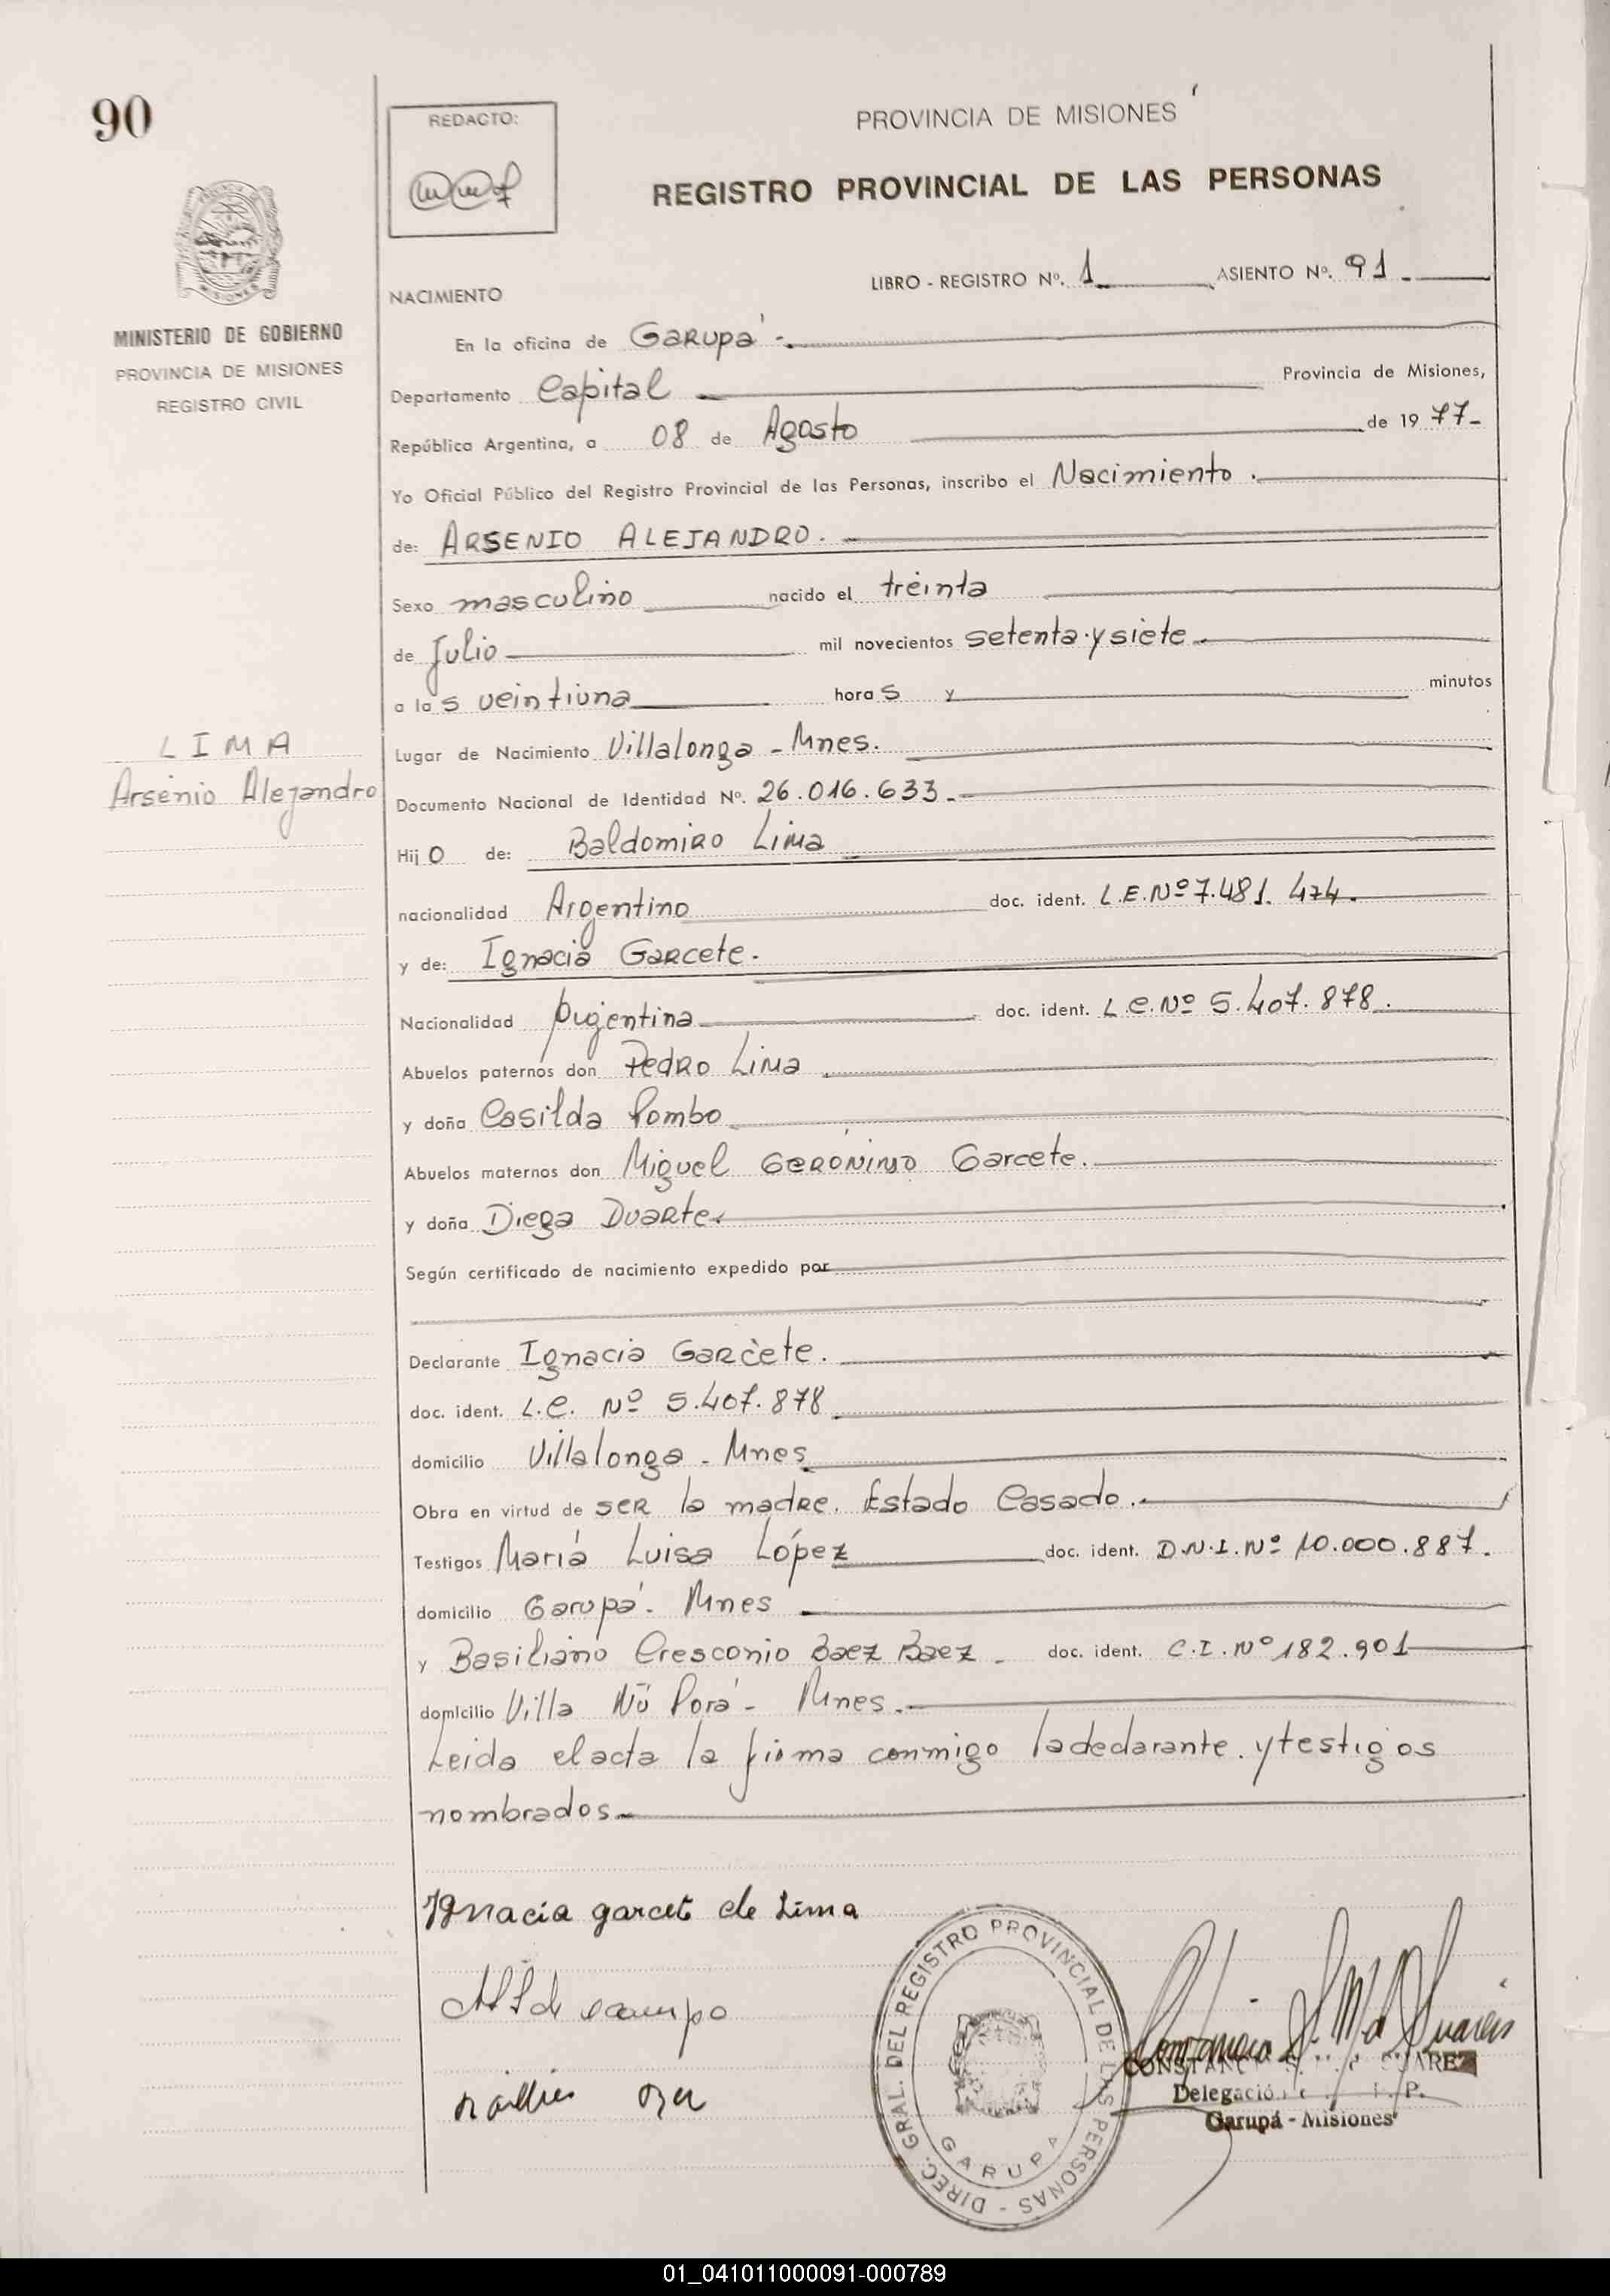 90
REDACTO:
PROVINCIA DE MISIONES
REGISTRO PROVINCIAL DE LAS PERSONAS
MISIONES
MINISTERIO DE GOBIERNO
PROVINCIA DE MISIONES
REGISTRO CIVIL
LIBRO - REGISTRO Nº. 1 ASIENTO Nº. 91.
NACIMIENTO
En la oficina de Garupá -.
Departamento Capital Provincia de Misiones,
República Argentina, a 08 de Agosto de 1977-
Yo Oficial Público del Registro Provincial de las Personas, inscribo el Nacimiento.
de: ARSENIO ALEJANDRO.
Sexo masculino nacido el treinta
de Julio mil novecientos setenta y siete
a las veintiuna horas y minutos
LIMA
Arsenio Alejandro
Lugar de Nacimiento Villalonga - Mnes.
Documento Nacional de Identidad Nº. 26.016.633.-
Hijo de: Baldomiro Lima
nacionalidad Argentino doc. ident. L.E.Nº 7.481.474.
y de: Ignacia Garcete.
Nacionalidad Argentina doc. ident. L.C.Nº 5.407.878.
Abuelos paternos don Pedro Lima
y doña Casilda Pombo
Abuelos maternos don Miguel Gerónimo Garcete.
y doña Diega Duarte.
Según certificado de nacimiento expedido por
Declarante Ignacia Garcete.
doc. ident. L.C. Nº 5.407.878
domicilio Villalonga - Mnes
Obra en virtud de ser la madre. Estado Casado.
Testigos María Luisa López doc. ident. D.N.I.Nº 10.000.887.
domicilio Garupá. Mnes
y Basiliano Cresconio Baez Baez - doc. ident. C.I.Nº 182.901
domicilio Villa Ñú Porá - Mnes.
Leida el acta la firma conmigo la declarante y testigos
nombrados
Ignacia garcet de Lima
DIREC. GRAL. DEL REGISTRO PROVINCIAL DE LAS PERSONAS -
GARUPA
SUAREZ
Garupá - Misiones
01_041011000091-000789